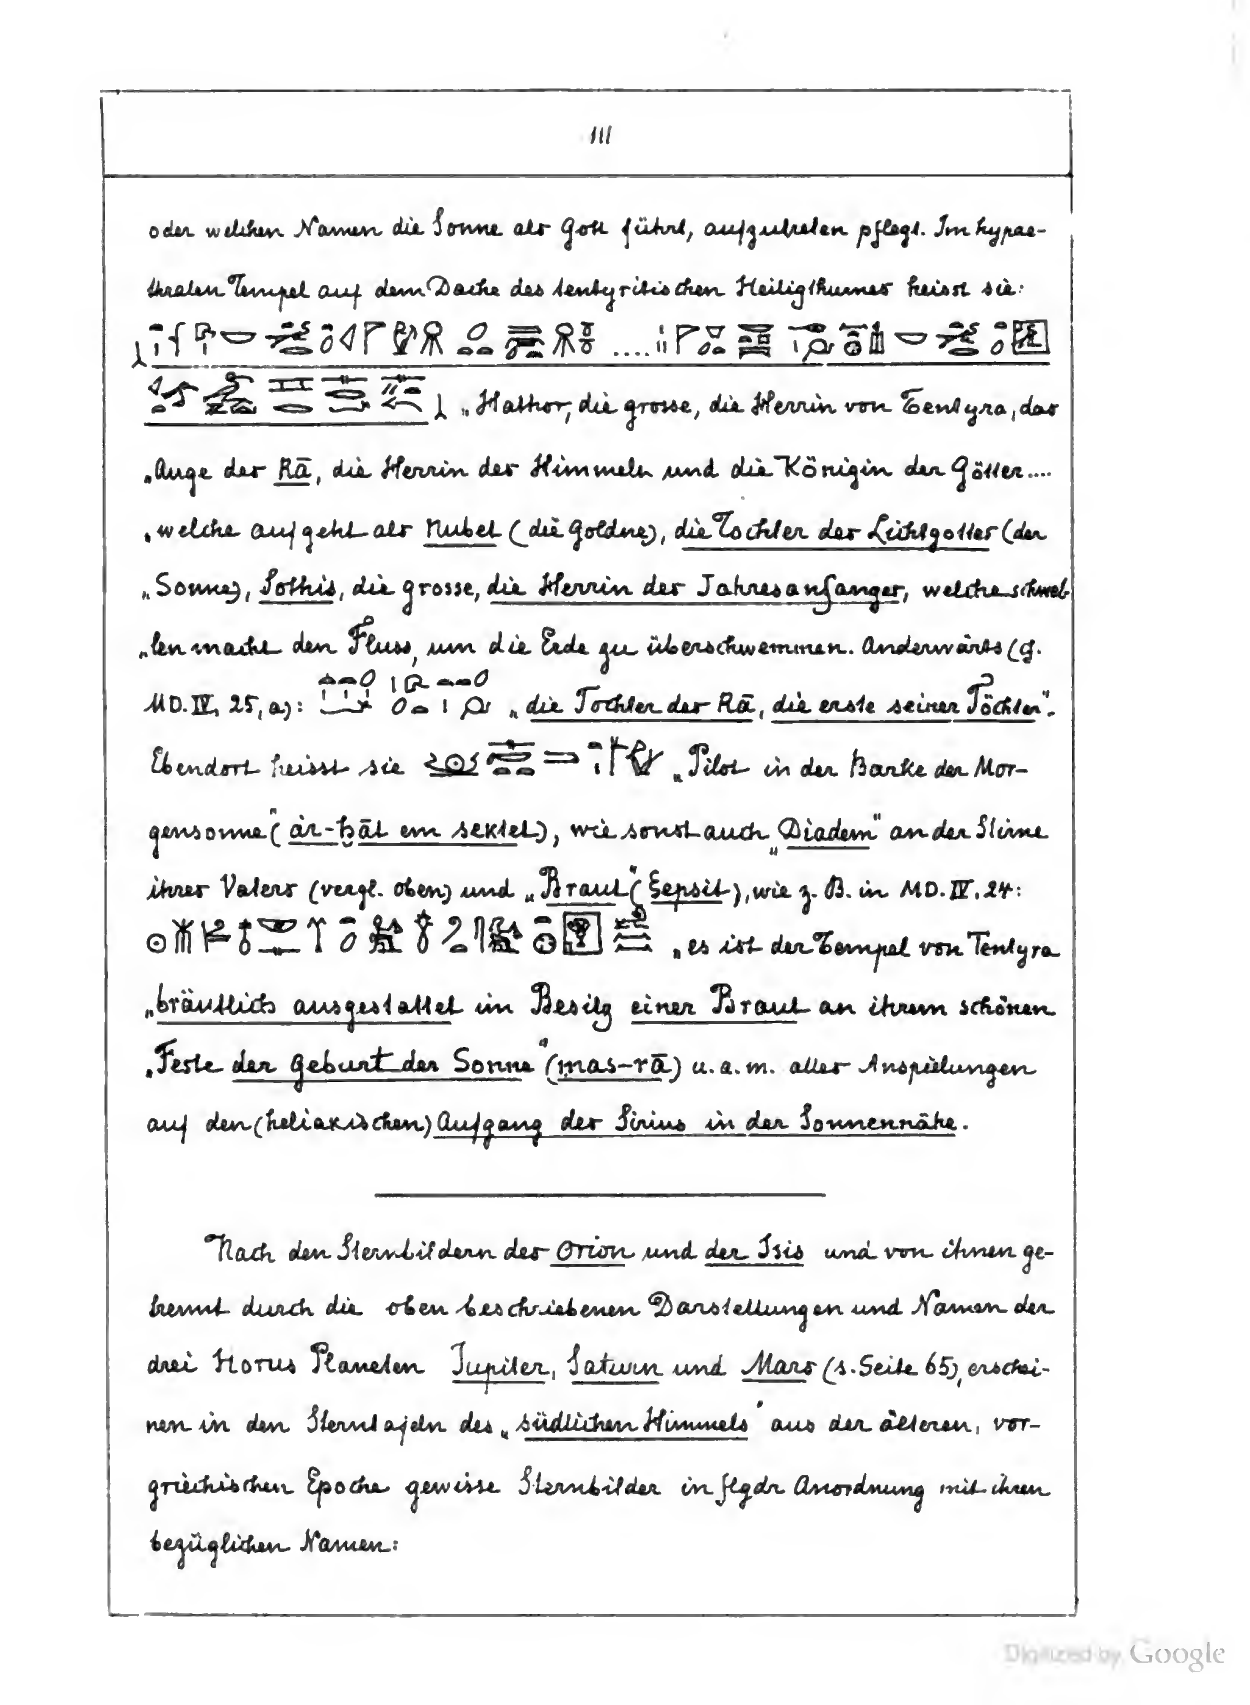 111
oder welchen Namen die Sonne als Gott führt, aufzutreten pflegt. Im hypae-
thralen Tempel auf dem Dache des tentyritischen Heiligthumes heisst sie:
.... 
„Hathor, die grosse, die Herrin von Tentyra, das
„Auge des Rā, die Herrin des Himmels und die Königin der Götter....
„welche aufgeht als Nubet (die Goldne), die Tochter des Lichtgottes (der
„Sonne), Sothis, die grosse, die Herrin des Jahresanfanges, welche schwel-
„len macht den Fluss, um die Erde zu überschwemmen. Anderwärts (cf.
MD. IV, 25, a): „die Tochter des Rā, die erste seiner Töchter".
Ebendort heisst sie „Pilot in der Barke der Mor-
gensonne" (ár-ḥāt em sektet), wie sonst auch „Diadem" an der Stirne
ihres Vaters (vergl. oben) und „Braut" (šepsit), wie z. B. in MD. IV, 24:
„es ist der Tempel von Tentyra
„bräutlich ausgestattet im Besitz einer Braut an ihrem schönen
„Feste der Geburt der Sonne" (mas-rā) u. a. m. alles Anspielungen
auf den (heliakischen) Aufgang des Sirius in der Sonnennähe.
Nach den Sternbildern des Orion und der Isis und von ihnen ge-
trennt durch die oben beschriebenen Darstellungen und Namen der
drei Horus Planeten Jupiter, Saturn und Mars (s. Seite 65), erschei-
nen in den Sterntafeln des „südlichen Himmels" aus der älteren, vor-
griechischen Epoche gewisse Sternbilder in flgdr Anordnung mit ihren
bezüglichen Namen:
Digitized by Google